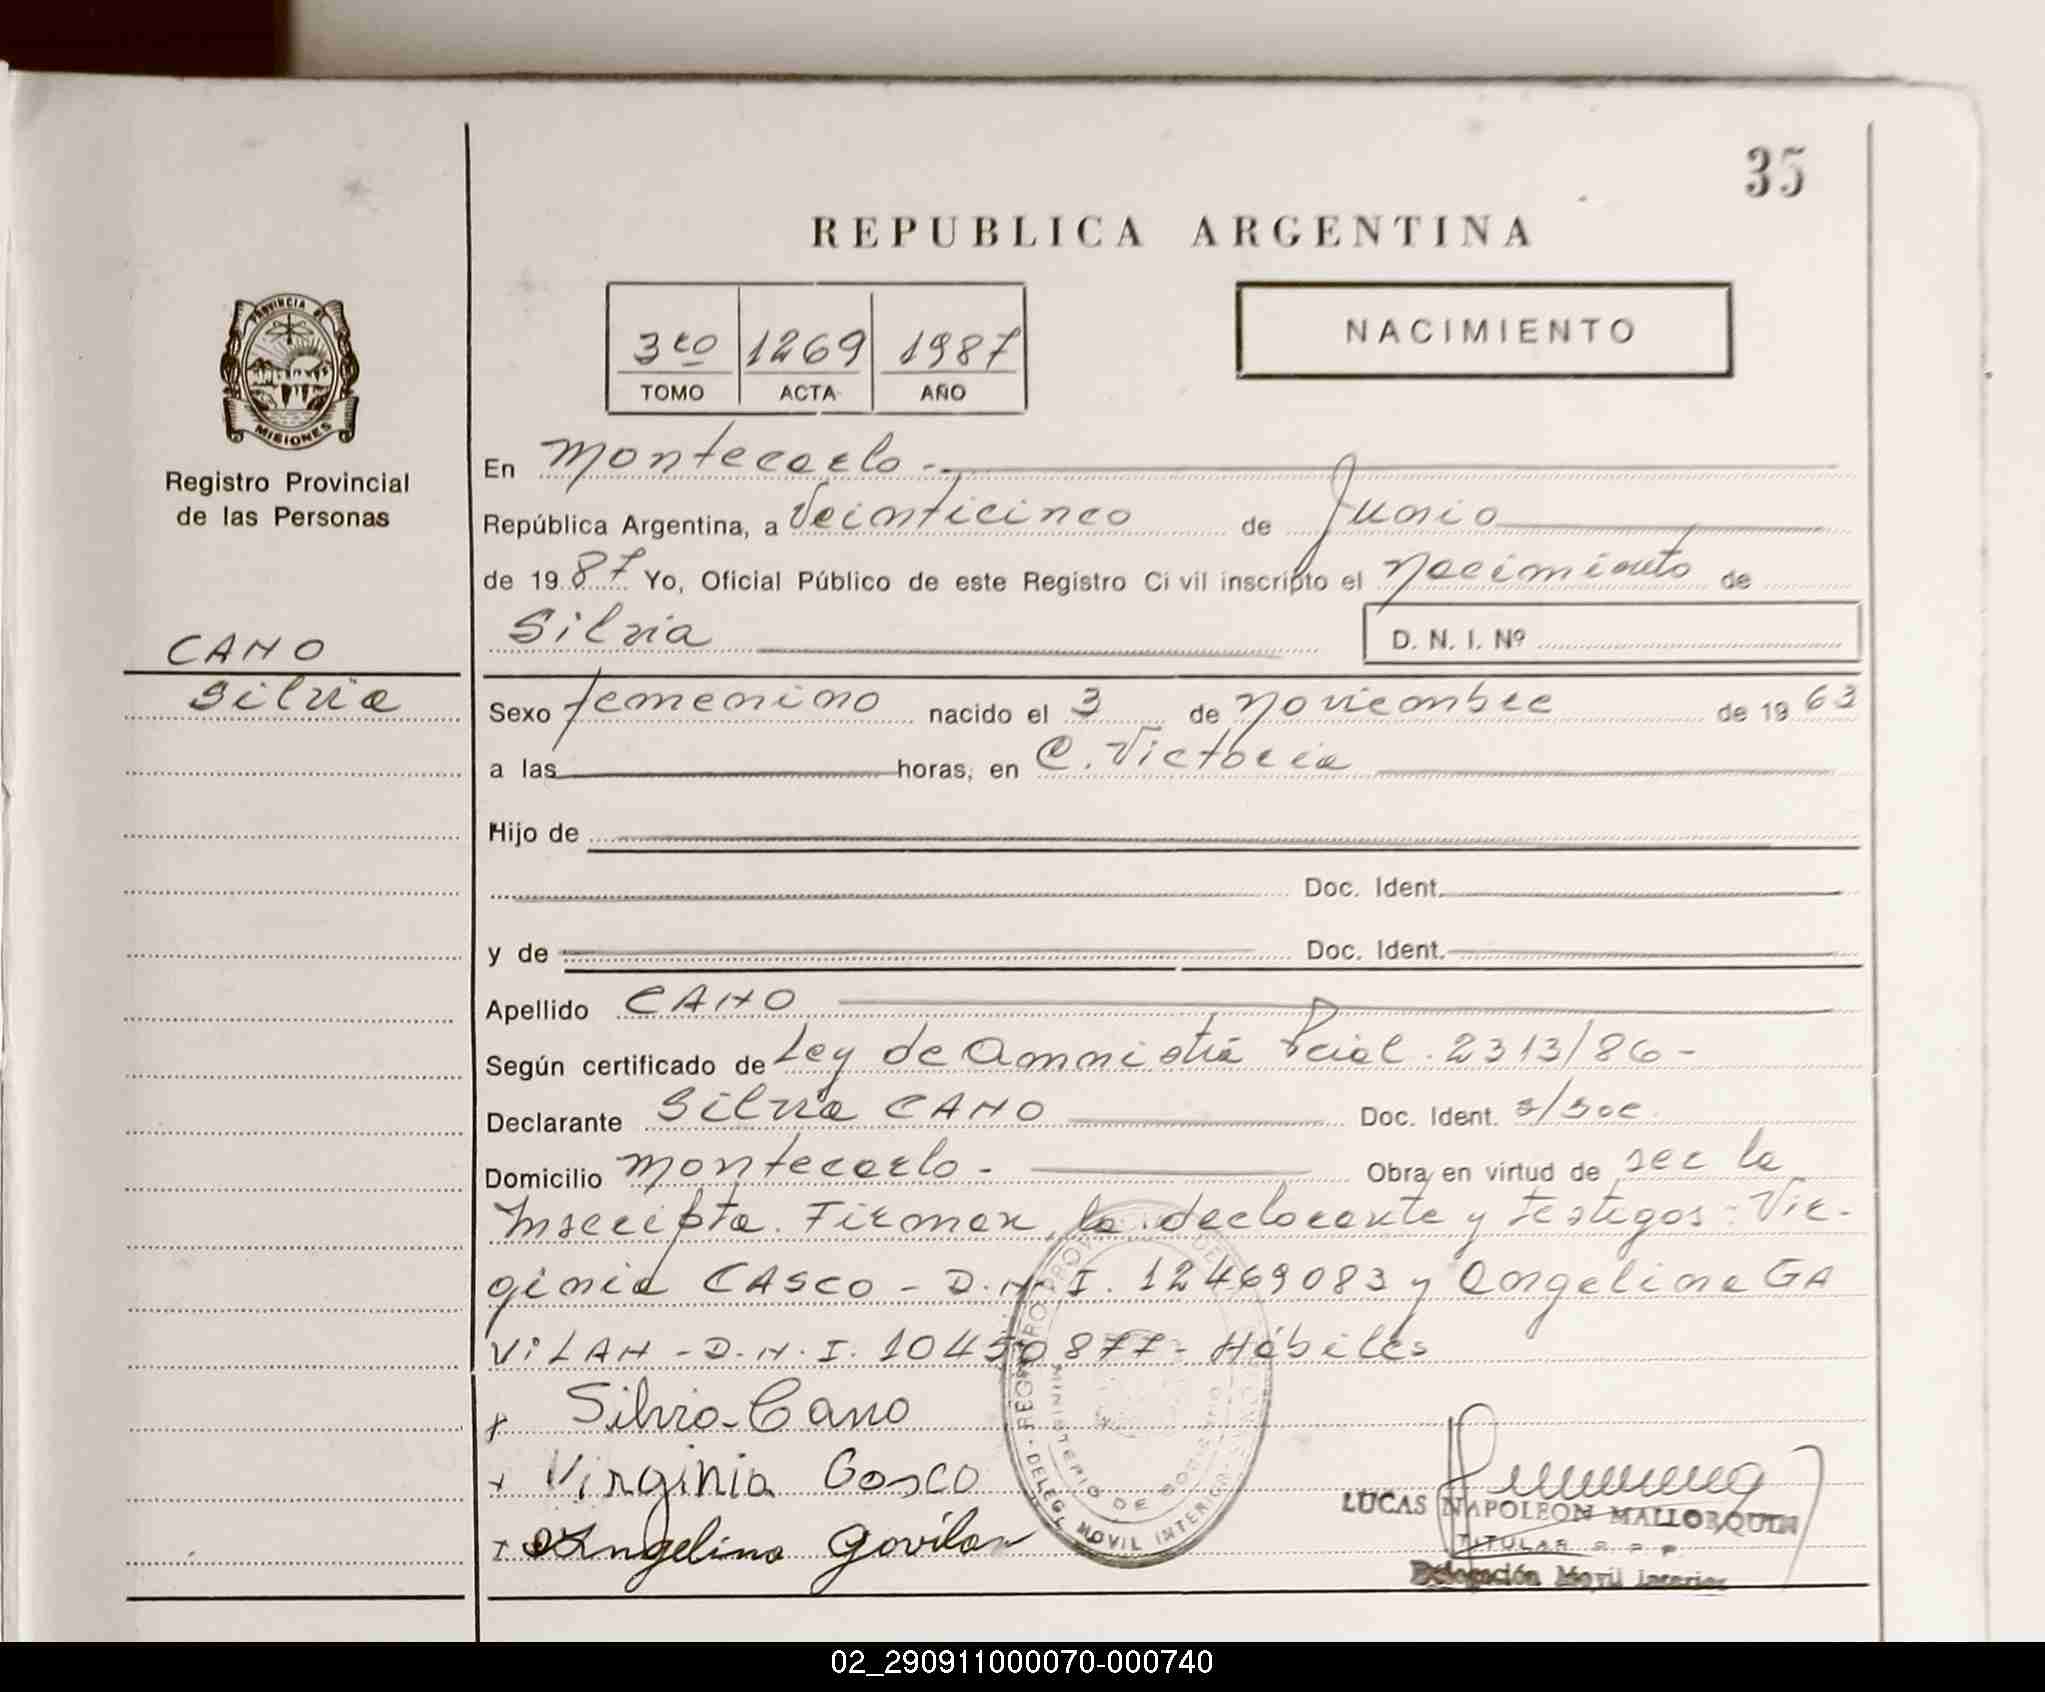 35
REPUBLICA ARGENTINA
3ro 1269 1987
TOMO ACTA AÑO
NACIMIENTO
PROVINCIA DE
MISIONES
Registro Provincial
de las Personas
CANO
Silvia
En Montecarlo.-
República Argentina, a Veinticinco de Junio
de 19 87 Yo, Oficial Público de este Registro Ci vil inscripto el Nacimiento de
Silvia
D. N. I. Nº
Sexo femenino nacido el 3 de Noviembre de 19 63
a las horas, en C. Victoria
Hijo de
Doc. Ident.
y de Doc. Ident.
Apellido CANO
Según certificado de Ley de Amnistía Pcial. 2313/86-
Declarante Silvia CANO Doc. Ident. s/Doc.
Domicilio Montecarlo - Obra en virtud de ser la
Inscripta. Firman, la declarante y testigos: Vir-
ginia CASCO - D.N.I. 12469083 y Angelina GA
ViLAN - D.N.I. 10450877- Hábiles
Silvia Cano
Virginia Casco
Angelina Gavilan
REGISTRO PROV DEL
MINISTERIO DE GOBIERNO
DELEG. MOVIL INTERIOR
LUCAS NAPOLEON MALLORQUIN
TITULAR R. P. P.
Delegación Movil Interior
02_290911000070-000740